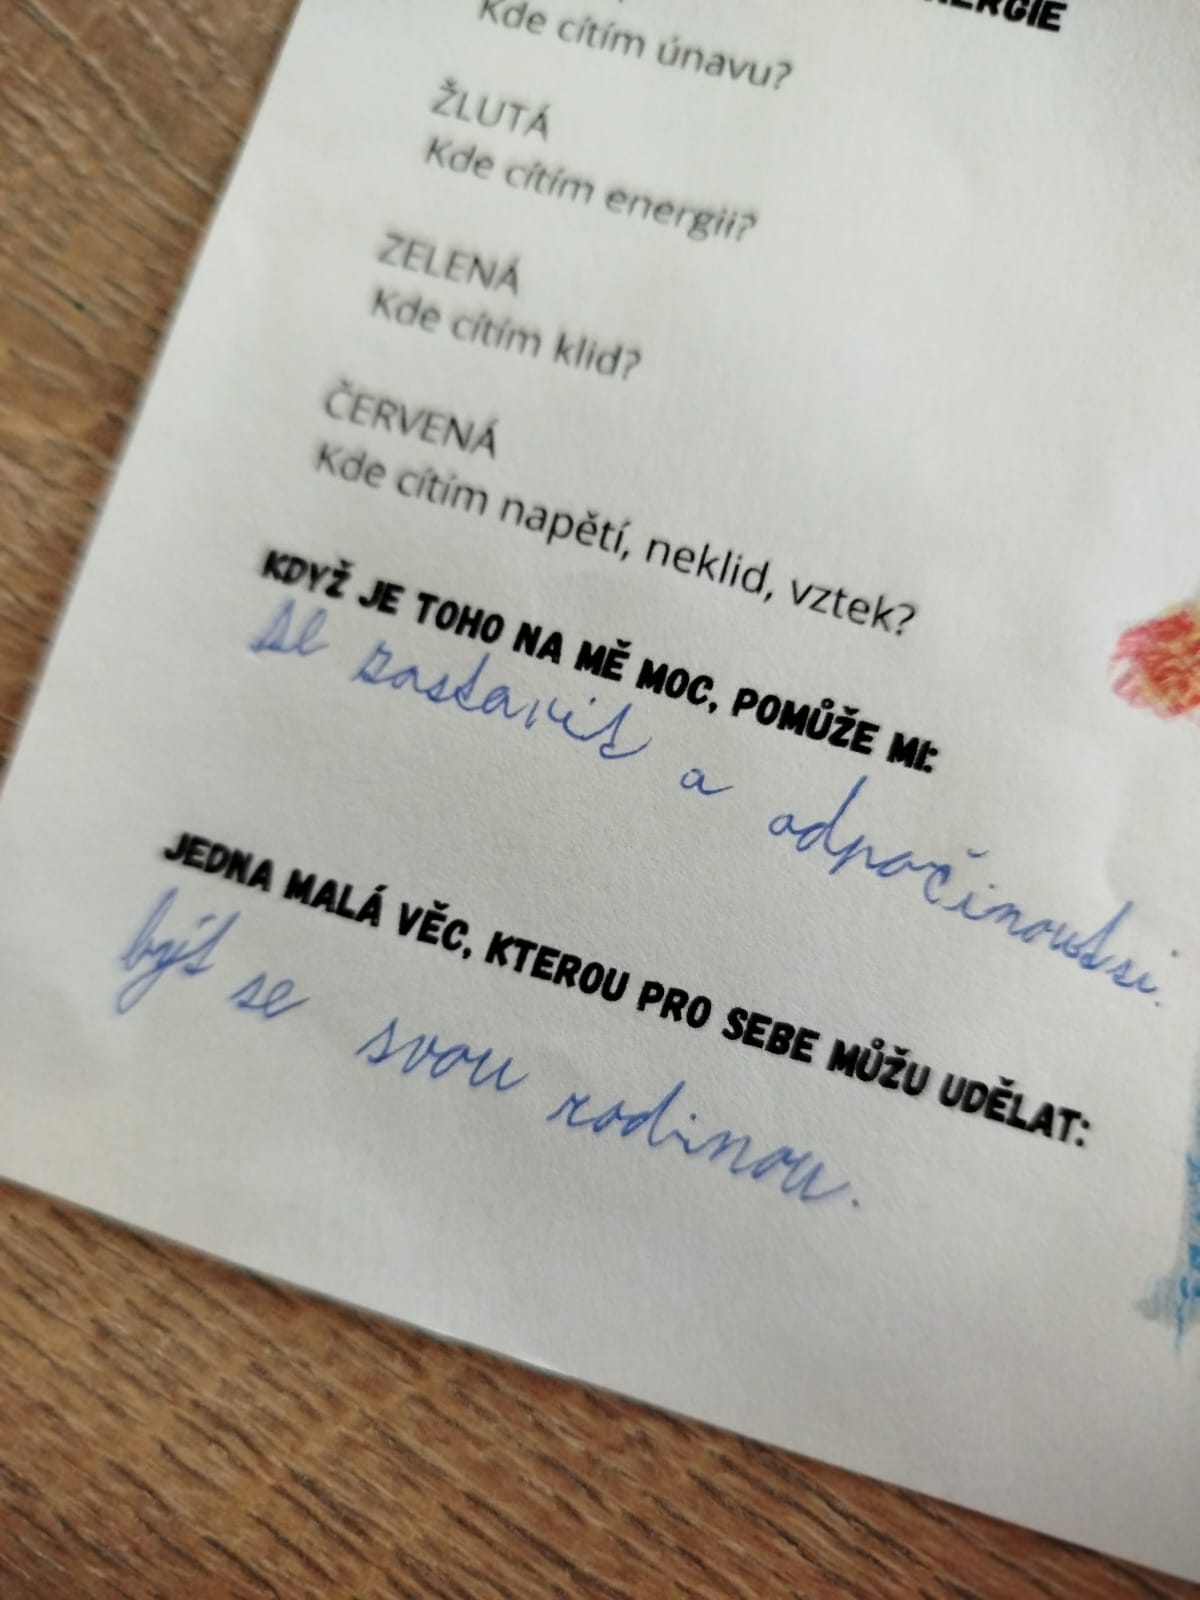 Kde cítím únavu?
ŽLUTÁ
Kde cítím energii?
ZELENÁ
Kde cítím klid?
ČERVENÁ
Kde cítím napětí, neklid, vztek?
KDYŽ JE TOHO NA MĚ MOC, POMŮŽE MI:
se zastavit a odpočinout si.
JEDNA MALÁ VĚC, KTEROU PRO SEBE MŮŽU UDĚLAT:
být se svou rodinou.